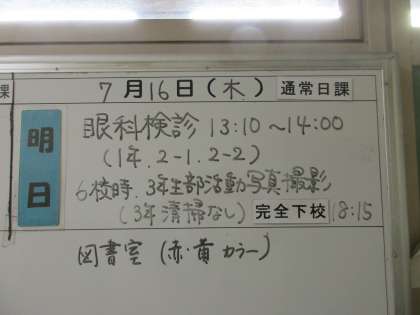 課 7月16日(木) 通常日課
明日
眼科検診 13:10~14:00
(1年.2-1.2-2)
6校時.3年生部活動写真撮影
(3年清掃なし) 完全下校 18:15
図書室 (赤・黄カラー)